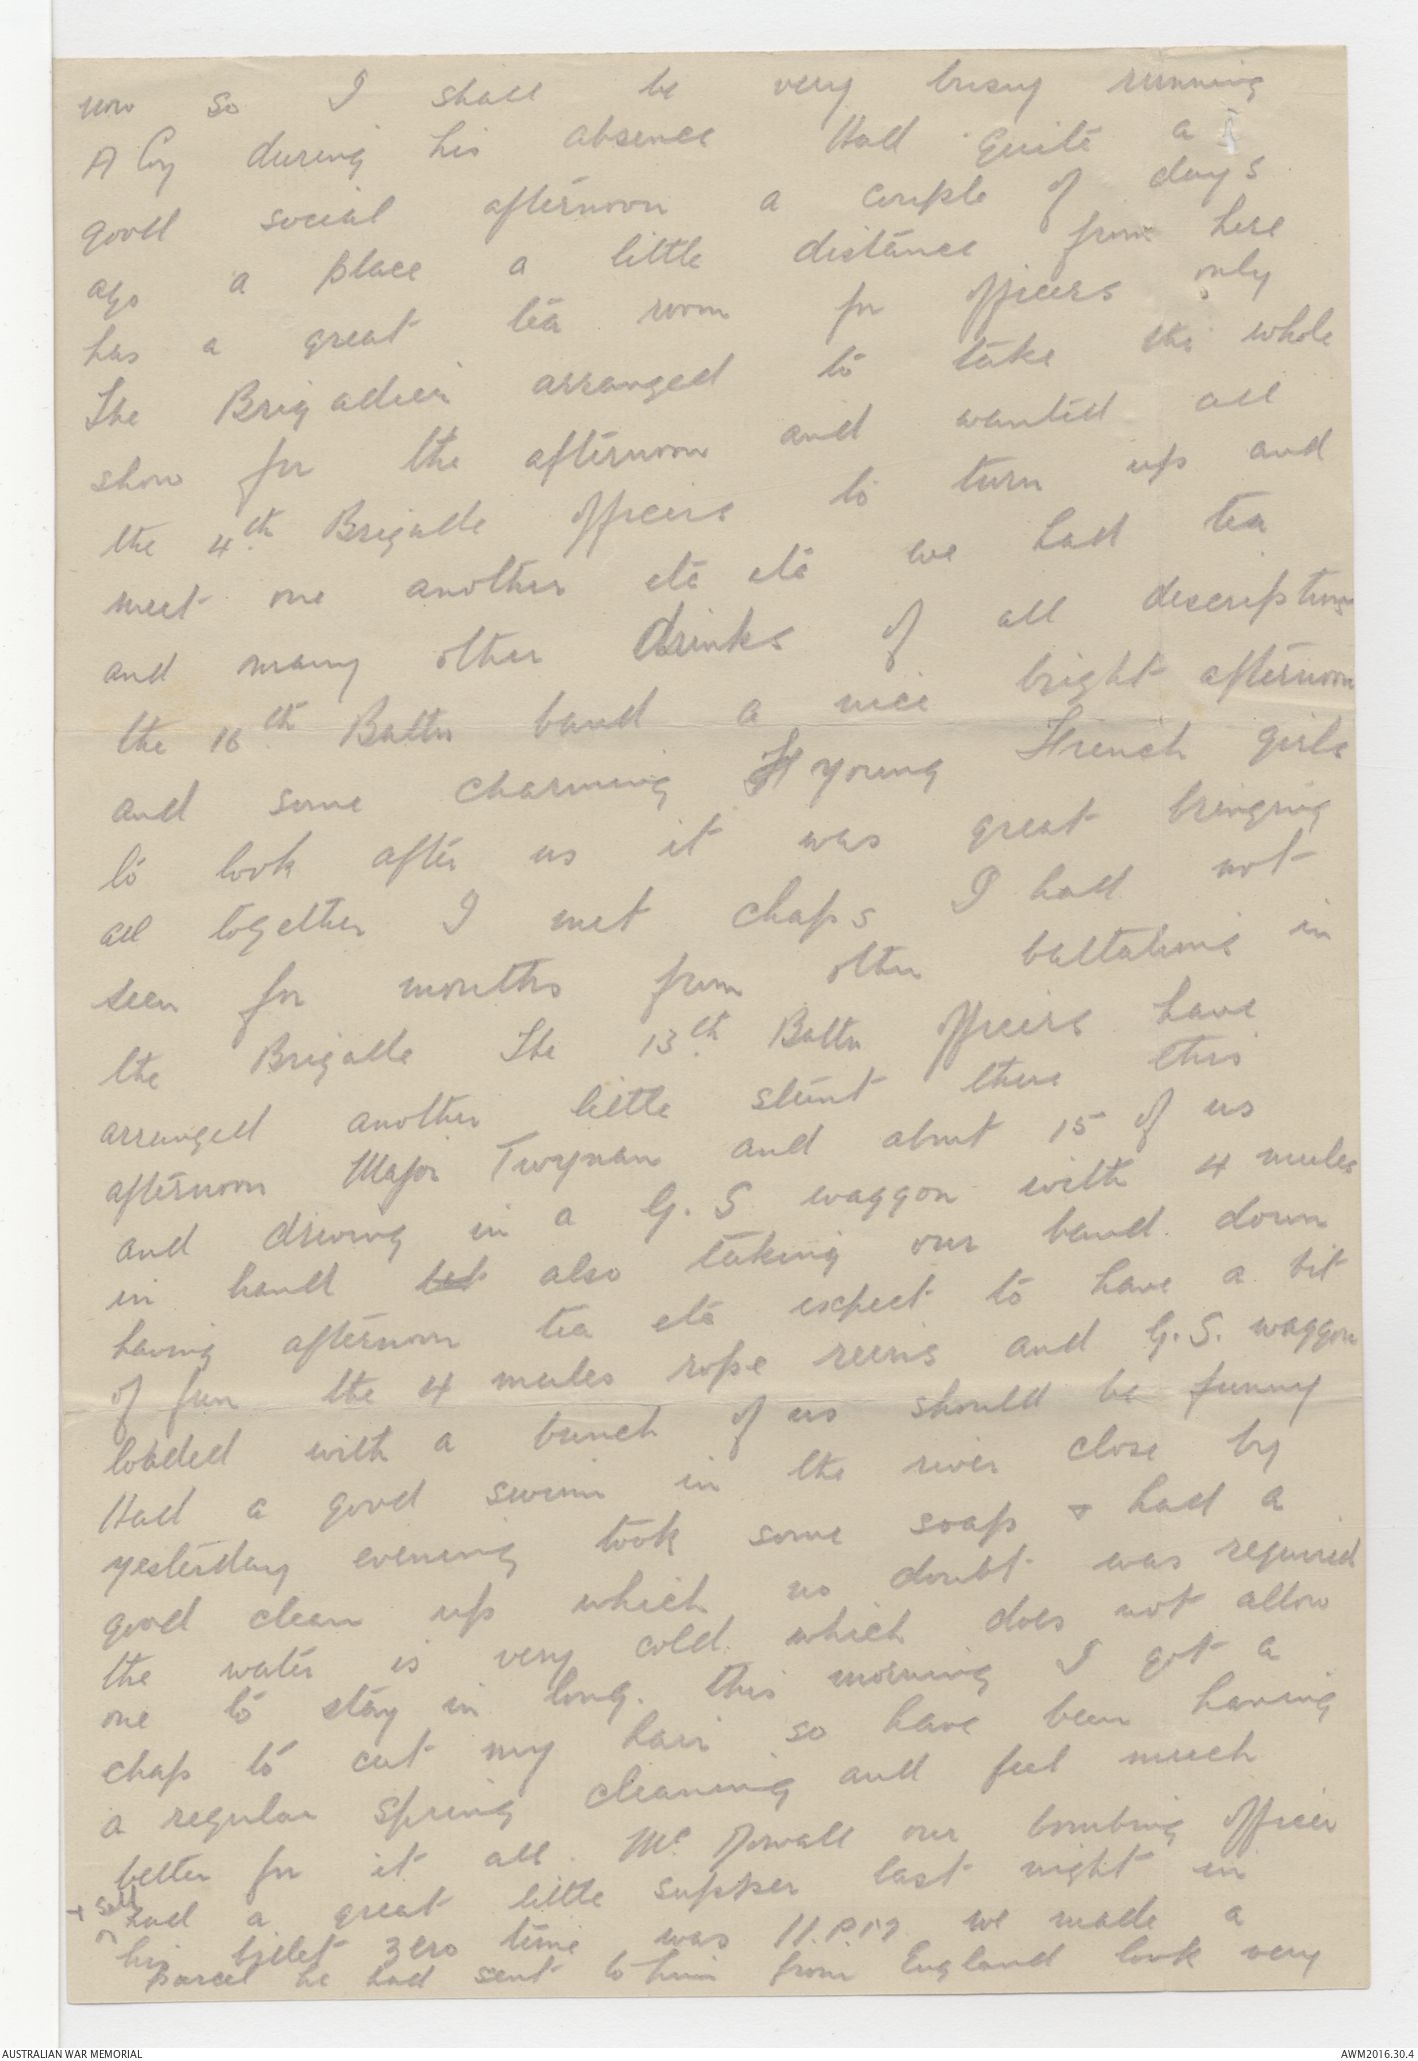 now so I shall be very busy running
A Coy during his absence Had quite a
good social afternoon a couple of days
ago a place a little distance from here
has a great tea room for officers only
The Brigadier arranged to take the whole
show for the afternoon and wanted all
the 4th Brigade officers to turn up and
meet one another etc etc we had tea
and many other drinks of all descriptions
the 16th Battn band a nice bright afternoon
and some charming young French girls
to look after us it was great bringing
all together I met chaps I had not
seen for months from other battalions in
the Brigade The 13th Battn officers have
arranged another little stunt there this
afternoon Major Twynam and about 15 of us
and driving in a G.S waggon with 4 mules
in hand also taking our band down
having afternoon tea etc expect to have a bit
of fun the 4 mules rope reins and G.S. waggon
loaded with a bunch of us should be funny
Had a good swim in the river close by
yesterday evening took some soap & had a
good clean up which no doubt was required
the water is very cold which does not allow
one to stay in long. This morning I got a
chap to cut my hair so have been having
a regular spring cleaning and feel much
better for it all. Mc Dowall our bombing officer
+ self had a great little supper last night in
his billet zero time was 11.p.m we made a
parcel he had sent to him from England look very
AUSTRALIAN WAR MEMORIAL
AWM2016.30.4